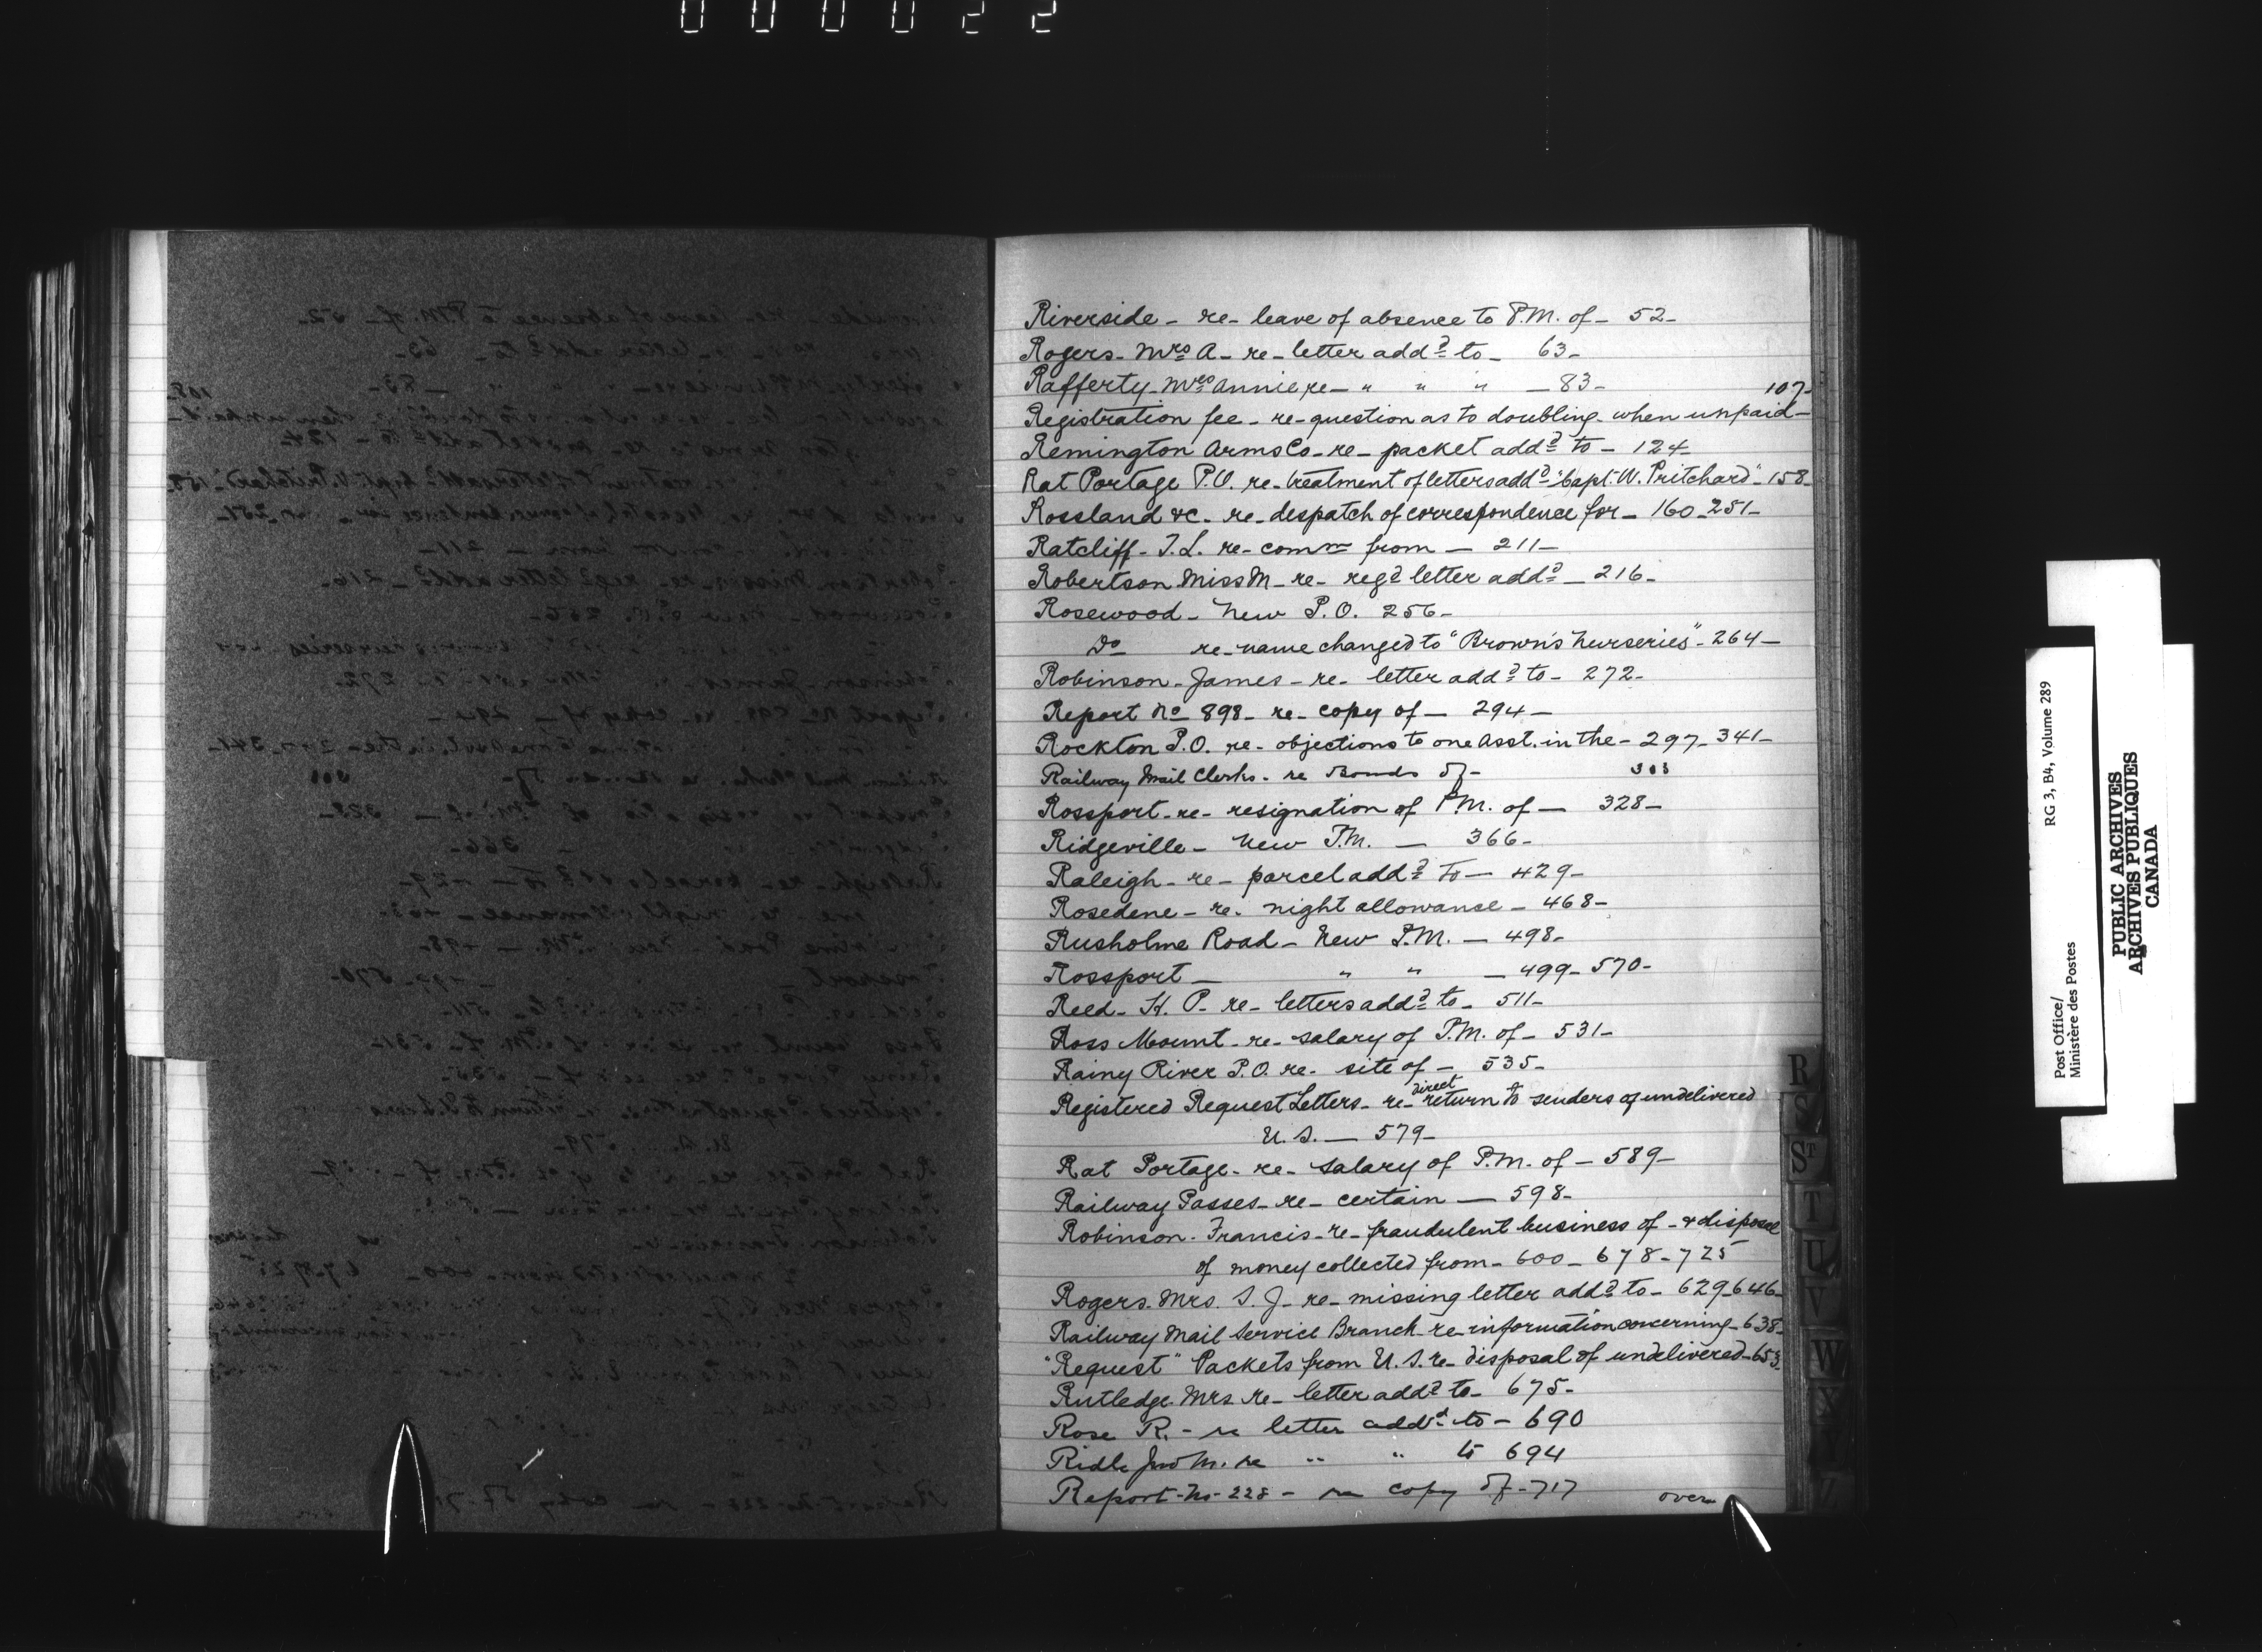 000022
Riverside - re - leave of absence to P.M. of - 52 -
Rogers - Mrs A - re - letter addd to - 63 -
Rafferty - Mrs Annie re - " " " - 83 -
107 -
Registration fee - re - question as to doubling - when unpaid -
Remington Arms Co - re - packet addd to - 124 -
Rat Portage P.O. re - treatment of letters addd "Capt. W. Pritchard" - 158 -
Rossland &c - re - despatch of correspondence for - 160 - 251 -
Ratcliff - T.L. re - comn from - 211 -
Robertson Miss M - re - regd letter addd - 216 -
Rosewood - New P.O. 256 -
Do re - name changed to "Brown's Nurseries" - 264 -
Robinson - James - re - letter addd to - 272 -
Report No 898 - re - copy of - 294 -
Rockton P.O. re - objections to one Asst. in the - 297 - 341 -
Railway Mail Clerks - re Bonds of - 303
Rossport - re - resignation of P.M. of - 328 -
Ridgeville - New P.M. - 366 -
Raleigh - re - parcel addd to - 429 -
Rosedene - re - night allowance - 468 -
Rusholme Road - New P.M. - 498 -
Rossport - " " - 499 - 570 -
Reed - H. P - re - letters addd to - 511 -
Ross Mount - re - salary of P.M. of - 531 -
Rainy River P.O. re - site of - 535 -
Registered Request Letters - re - direct return to senders of undelivered
U.S. - 579 -
Rat Portage - re - salary of P.M. of - 589 -
Railway Passes - re - certain - 598 -
Robinson - Francis - re - fraudulent business of - & disposal
of money collected from - 600 - 678 - 725
Rogers - Mrs. S. J - re - missing letter addd to - 629 - 646 -
Railway Mail Service Branch - re - information concerning - 638 -
"Request" Packets from U.S. re - disposal of undelivered - 653
Rutledge Mrs re - letter addd to - 675 -
Rose R. - re letter addd to - 690
Ridle Jno M. re " " to 694
Report - No - 228 - re copy of - 717
over
R
S
ST
T
U
V
W
X
Post Office/
Ministère des Postes
RG 3, B4, Volume 289
PUBLIC ARCHIVES
ARCHIVES PUBLIQUES
CANADA